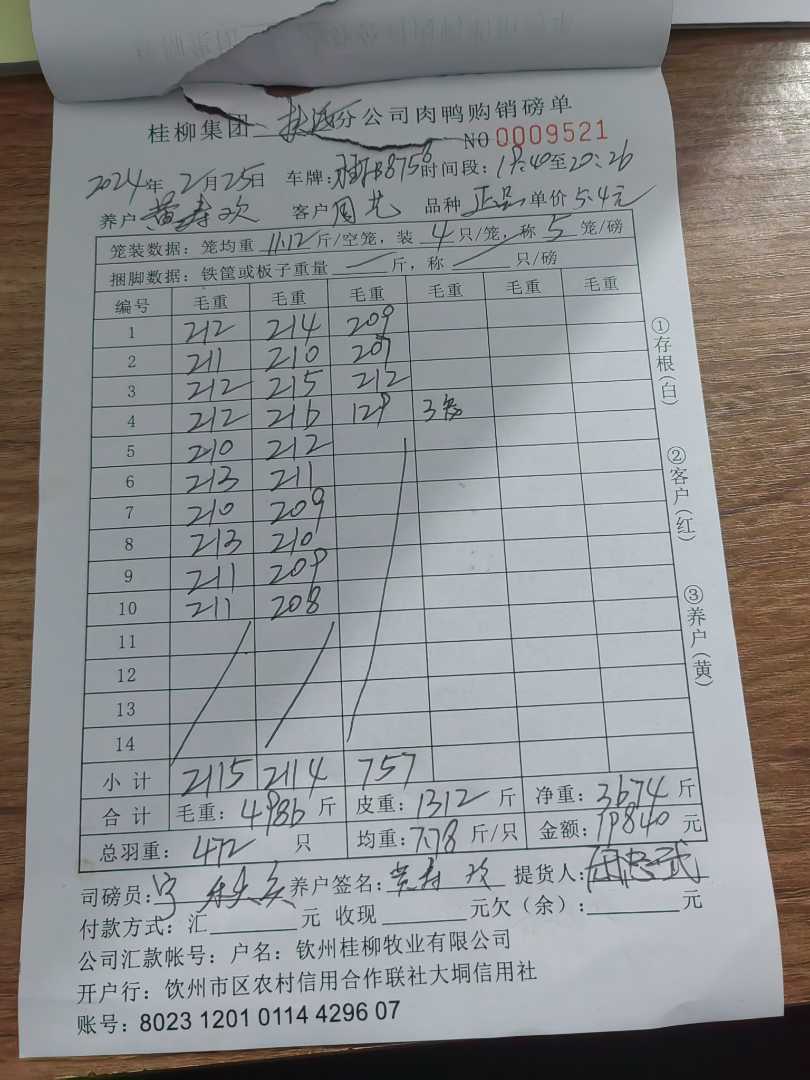 桂柳集团 分公司肉鸭购销磅单
NO 0009521
2024年2月25日 车牌: 8758 时间段: 18:40至20:26
养户 黄寿欢 客户 周艺 品种 正品 单价 5.4元
笼装数据: 笼均重 11.12 斤/空笼, 装 4 只/笼, 称 5 笼/磅
捆脚数据: 铁筐或板子重量 斤, 称 只/磅
编号 毛重 毛重 毛重 毛重 毛重 毛重
1 212 214 209
2 211 210 207
3 212 215 212
4 212 216 129 3笼
5 210 212
6 213 211
7 210 209
8 213 210
9 211 209
10 211 208
11
12
13
14
小计 2115 2114 757
合计 毛重: 4986 斤 皮重: 1312 斤 净重: 3674 斤
总羽重: 472 只 均重: 7.78 斤/只 金额: 19840 元
司磅员: 养户签名: 黄寿欢 提货人:
付款方式: 汇 元 收现 元欠(余): 元
公司汇款帐号: 户名: 钦州桂柳牧业有限公司
开户行: 钦州市区农村信用合作联社大垌信用社
账号: 8023 1201 0114 4296 07
①存根(白)
②客户(红)
③养户(黄)